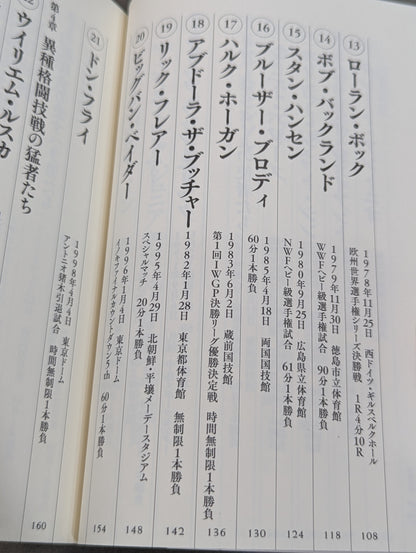 13 ローラン・ボック
1978年11月25日 西ドイツ・ギルスベルクホール
欧州世界選手権シリーズ決勝戦 1R4分10R
108
14 ボブ・バックランド
1979年11月30日 徳島市立体育館
WWFヘビー級選手権試合 90分1本勝負
118
15 スタン・ハンセン
1980年9月25日 広島県立体育館
NWFヘビー級選手権試合 61分1本勝負
124
16 ブルーザー・ブロディ
1985年4月18日 両国国技館
60分1本勝負
130
17 ハルク・ホーガン
1983年6月2日 蔵前国技館
第1回IWGP決勝リーグ優勝決定戦 時間無制限1本勝負
136
18 アブドーラ・ザ・ブッチャー
1982年1月28日 東京都体育館 無制限1本勝負
142
19 リック・フレアー
1995年4月29日 北朝鮮・平壌メーデースタジアム
スペシャルマッチ 20分1本勝負
148
20 ビッグバン・ベイダー
1996年1月4日 東京ドーム
イノキファイナルカウントダウン5th 60分1本勝負
154
21 ドン・フライ
1998年4月4日 東京ドーム
アントニオ猪木引退試合 時間無制限1本勝負
160
第4章 異種格闘技戦の猛者たち
ウイリエム・ルスカ